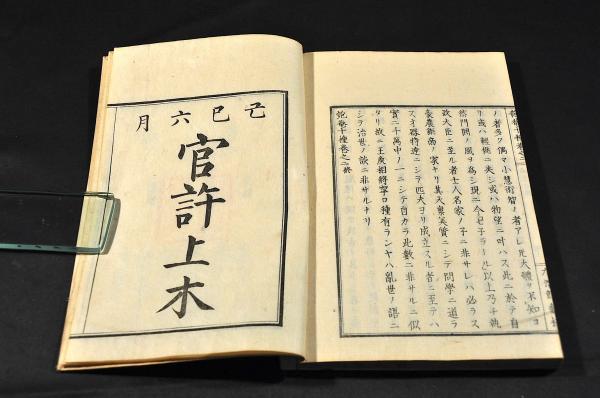 ノ者多ク偶マ小慧術智ノ者アレ𪜈大體ヲ不知コ
リ或ハ經済ニ失シ或ハ物望ニ叶ハス此ニ於テ自
然門閥ノ風ヲ為シ現ニ今セ子ラール以上乃チ執
政大臣ニ至ル者士人名家ノ子ニ非サレハ必ラス
豪農商ノ家ナリ其天稟美質ニシテ問學ニ道ラ
ス才器特達ニシテ匹夫ヨリ成立スル者ニ至テハ
實ニ千萬中ノ一ニシテ自カラ此數ニ非サルニ似
タリ故ニ王侯相將寧ロ種有ランヤハ亂世ノ語ニ
シテ治世ノ談ニ非サルナリ
匏菴十種巻之二終
己巳六月
官許上木